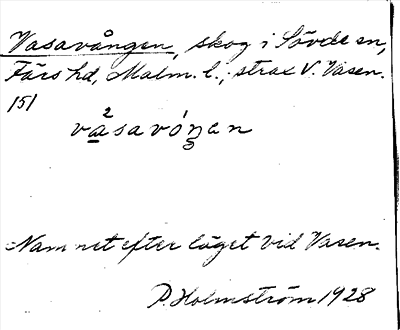 Vasavången, skog i Sövde sn,
Färs hd, Malm. l.; strax V. Vasen.
151
va²savóŋen
Namnet efter läget vid Vasen.
P. Holmström 1928